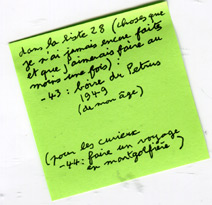 dans la liste 28 (choses que
je n'ai jamais encore faites
et que j'aimerais faire au
moins une fois) :
- 43 : boire du Petrus
1949
(de mon âge)
(pour les curieux
- 44 : faire un voyage
en montgolfière)